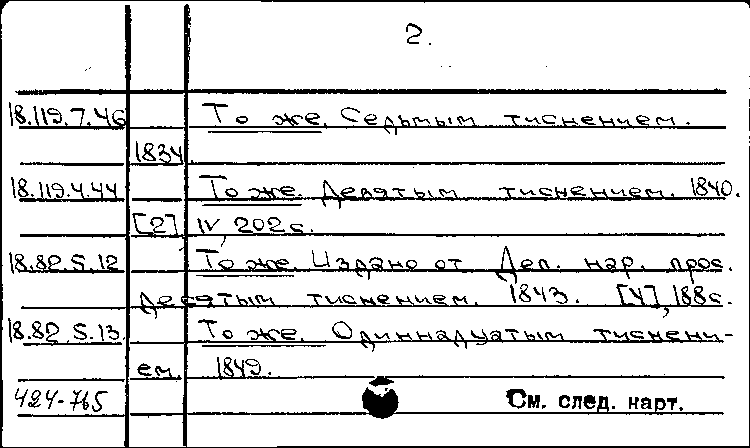 2.
18.119.7.46 То же. Седьмым тиснением.
1834
18.119.4.44 То же. Девятым тиснением. 1840.
[2] IV, 202 с.
18.82.5.12 То же. Издано от Деп. нар. прос.
Десятым тиснением. 1843. [4], 188 с.
18.82.5.13. То же. Одиннадцатым тиснени-
ем. 1849.
424-765 См. след. карт.